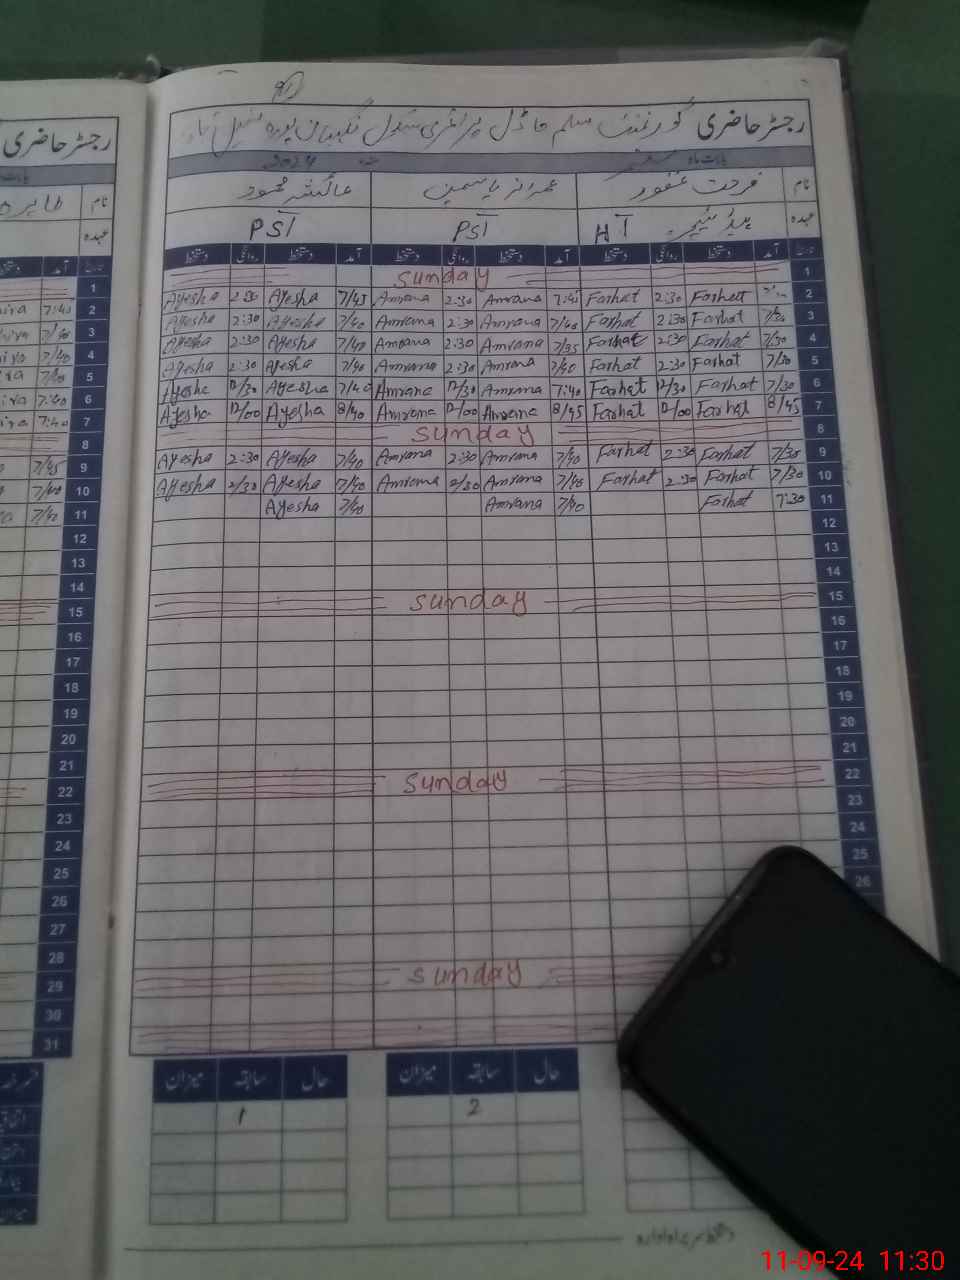 رجسٹر حاضری گورنمنٹ مسلم ماڈل پرائمری سکول نگہبان پورہ
بابت ماہ ستمبر سنہ 2024
نام فرحت غفور عمرانہ یاسمین عائشہ محمود
عہدہ ہیڈ ٹیچر H T PST PST
تاریخ آمد دستخط روانگی دستخط آمد دستخط روانگی دستخط آمد دستخط روانگی دستخط
Sunday 1
Ayesha 2:30 Ayesha 7/45 Amrana 2:30 Amrana 7:45 Farhat 2:30 Farhat 2
Ayesha 2:30 Ayesha 7/40 Amrana 2:30 Amrana 7/40 Farhat 2:30 Farhat 7/30 3
Ayesha 2:30 Ayesha 7/40 Amrana 2:30 Amrana 7/35 Farhat 2:30 Farhat 7/30 4
Ayesha 2:30 Ayesha 7/40 Amrana 2:30 Amrana 7/40 Farhat 2:30 Farhat 7/30 5
Ayesha 12/30 Ayesha 7/40 Amrana 12/30 Amrana 7:40 Farhat 12/30 Farhat 7/30 6
Ayesha 12/00 Ayesha 8/40 Amrana 12/00 Amrana 8/45 Farhat 12/00 Farhat 8/45 7
Sunday 8
Ayesha 2:30 Ayesha 7/40 Amrana 2:30 Amrana 7/40 Farhat 2:30 Farhat 7/30 9
Ayesha 2/30 Ayesha 7/40 Amrana 2/30 Amrana 7/40 Farhat 2:30 Farhat 7/30 10
Ayesha 7/40 Amrana 7/40 Farhat 7:30 11
12
13
14
Sunday 15
16
17
18
19
20
21
Sunday 22
23
24
25
26
Sunday
میزان سابقہ حال میزان سابقہ حال
1 2
رجسٹر حاضری
نام طاہرہ
عہدہ
1
7:45 2
7/40 3
7/40 4
7/40 5
7:40 6
7:40 7
8
7/45 9
7/40 10
7/40 11
12
13
14
15
16
17
18
19
20
21
22
23
24
25
26
27
28
29
30
31
میزان
11-09-24 11:30